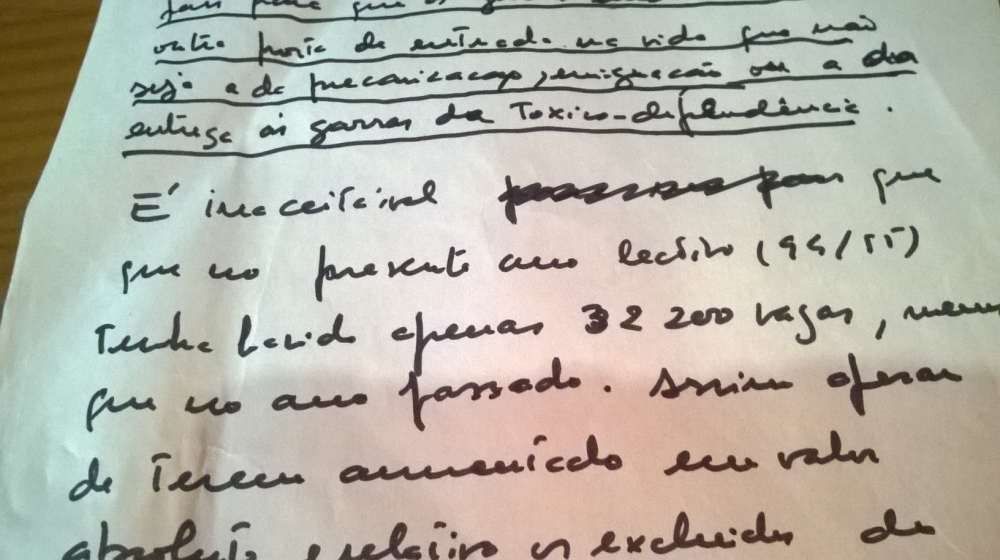 para que os
outra porta de entrada na vida que não
seja a da precarização, emigração ou a da
entrega às garras da Toxico-dependência.
É inaceitável que
que no presente ano lectivo (94/95)
Tenha havido apenas 32 200 vagas, menos
que no ano passado. Assim apesar
de Terem aumentado em valor
absoluto e relativo os excluídos do